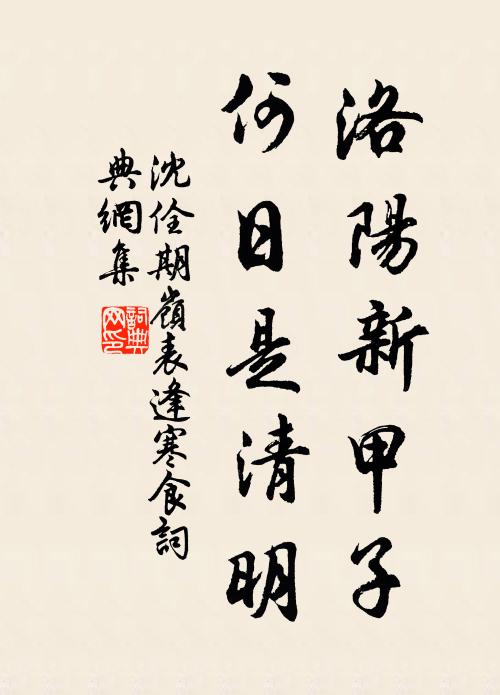 洛陽新甲子
何日是清明
沈佺期嶺表逢寒食詞
典網集
詞典
网印